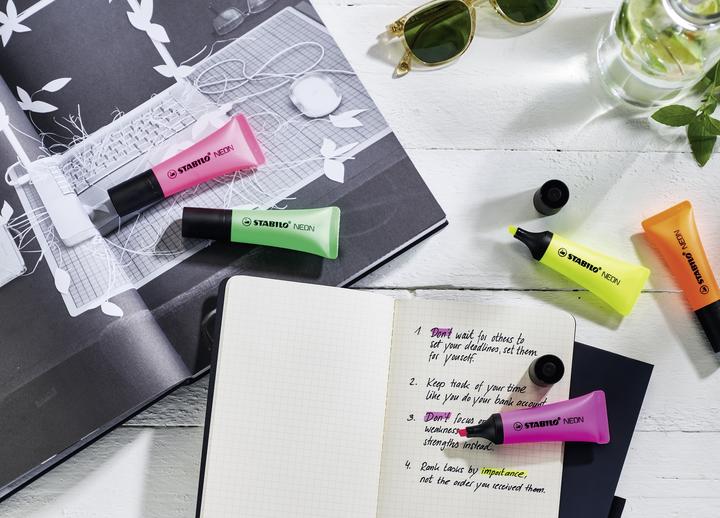 STABILO® NEON
STABILO® NEON
STABILO® NEON
STABILO® NEON
1. Don't wait for others to
set your deadlines, set them
for yourself.
2. Keep track of your time
like you do your bank account.
3. Don't focus on
weakness
strengths instead.
STABILO® NEON
4. Rank tasks by importance,
not the order you received them.